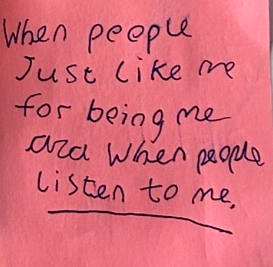 When people
Just like me
for being me
and when people
listen to me.